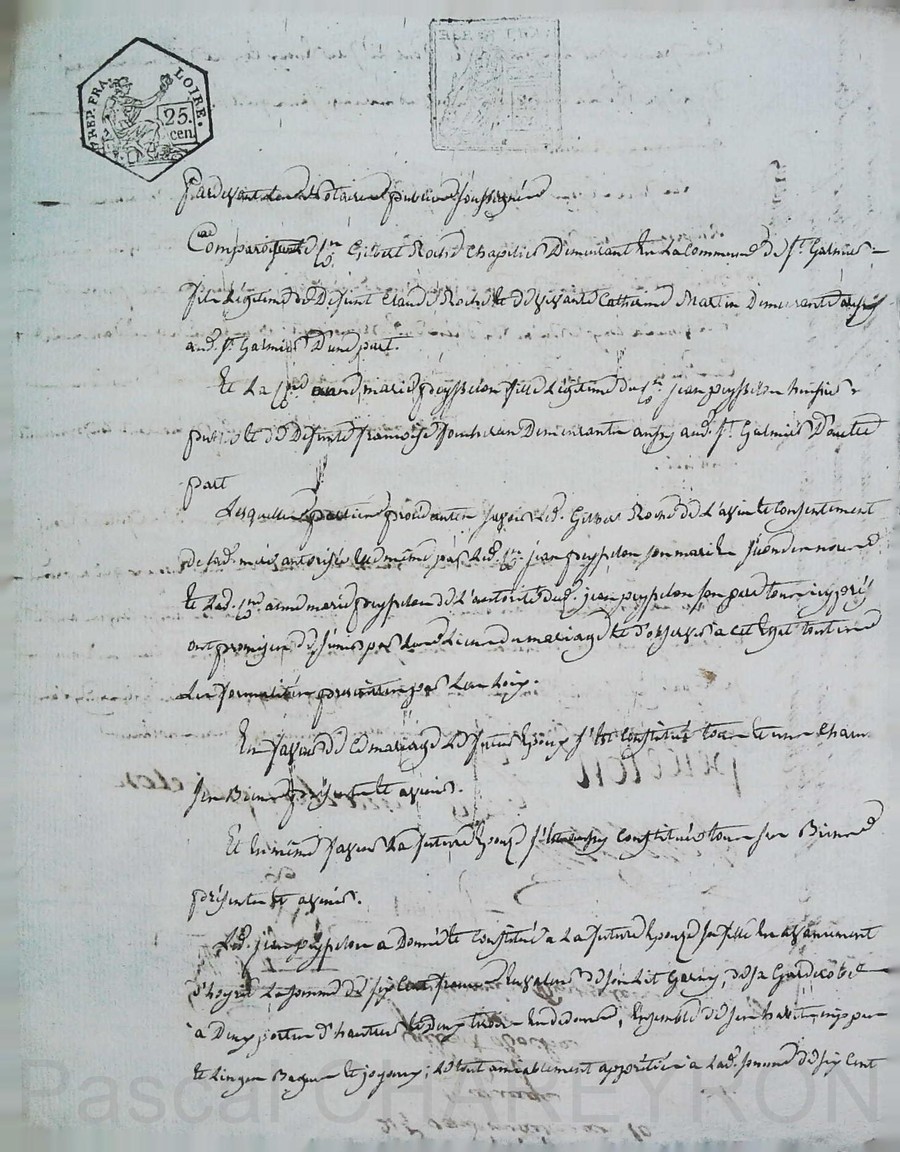 REP. FRA. LOIRE.
25.
cen
Pardevant les Notaires publics soussignés
Comparoissent le Cn. Gilbert Roche Chapelier Demeurant En La Commune de St. Galmier =
fils Légitime de Defunt Claude Roche et de vivante Catherine Martin Demeurante aussy
aud. St. Galmier D'une part.
Et La Cne. marie peysselon fille Légitime du Cn. jean peysselon huissier
public et de Defunte françoise Demeurante aussy aud. St. Galmier D'autre
part
Lesquelles parties procédantes savoir Led. Gilbert Roche de L'avis et Consentement
de sad. mère autorisée Elle même par Led. Cn. jean peysselon son mari En secondes noces
Et Lad. Cne. marie peysselon de L'autorité dud. jean peysselon son père tous icy présens
ont promis de s'unir par Les Liens du mariage et d'observer à cet Effet toutes
Les formalités prescrites par Les Loix.
En faveur de Ce mariage Le futur Epoux s'est Constitué tous et un Chacun
ses Biens présents et avenir.
Et En même faveur La future Epouse s'est aussy Constituée tous ses Biens
présents et avenir.
Led. jean peysselon a Donné et Constitué a La future Epouse sa fille En avancement
d'hoyrie La somme de six Cent francs En valeur de son Lit Garny, de sa Garderobe
à Deux portes Ensemble de ses habits, nippes
Et Linges Bagues et joyaux; Le tout amiablement apprétié à Lad. somme de six Cent
Pascal CHAREYRON